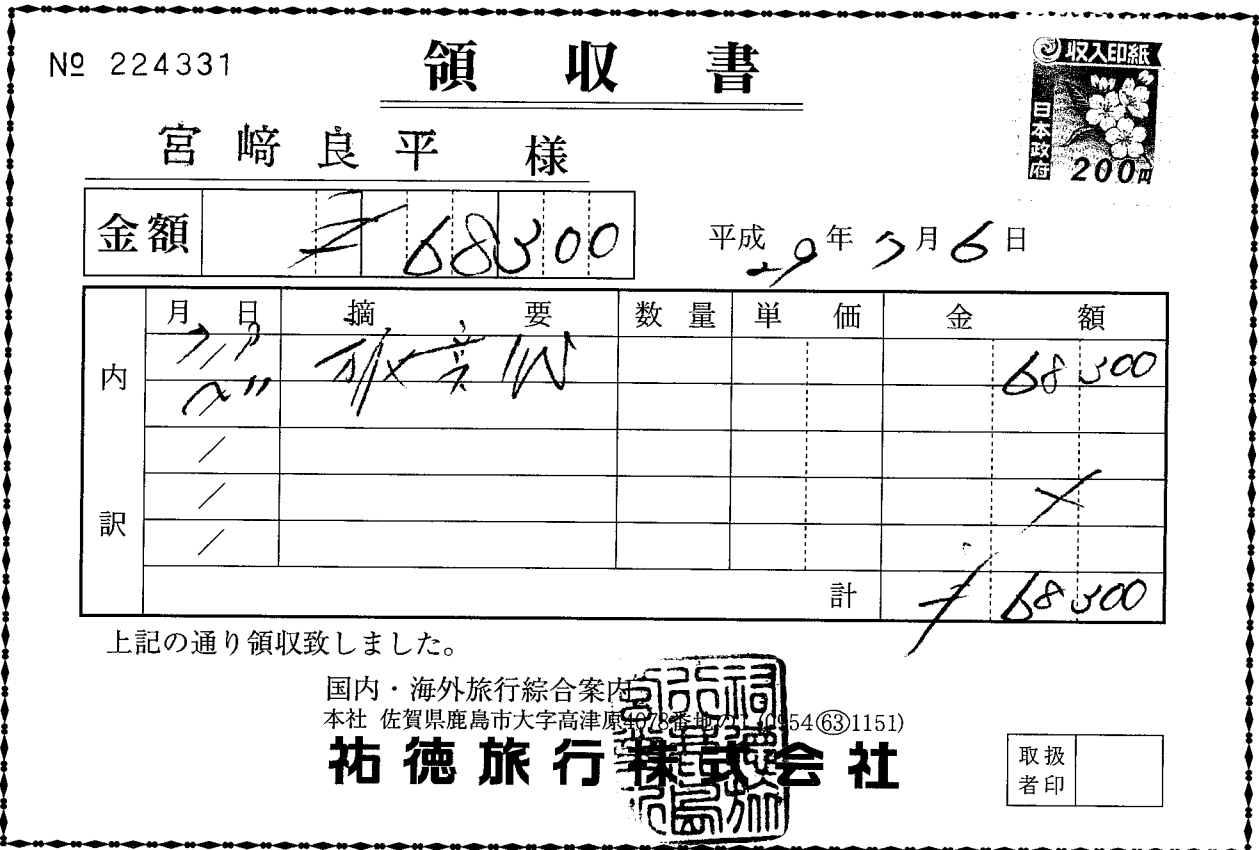 № 224331
領収書
収入印紙
日本政府
200円
宮﨑良平 様
金額 ¥68300
平成29年7月6日
月 日 摘要 数量 単価 金額
内訳
68300
/
/
/
計 ¥68300
上記の通り領収致しました。
国内・海外旅行綜合案内
本社 佐賀県鹿島市大字高津原4078番地の1 (0954(63)1151)
祐徳旅行株式会社
取扱者印